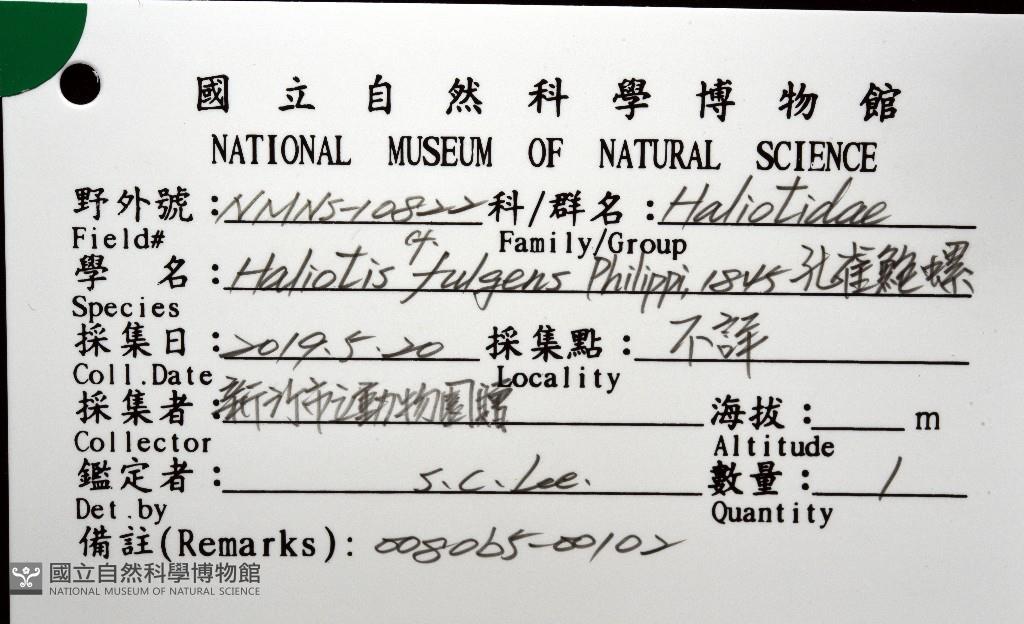 國立自然科學博物館
NATIONAL MUSEUM OF NATURAL SCIENCE
野外號：NMNS-10822 科/群名：Haliotidae
Field# Family/Group
cf.
學 名：Haliotis fulgens Philippi, 1845 孔雀鮑螺
Species
採集日：2019.5.20 採集點：不詳
Coll.Date Locality
採集者：新竹市立動物園贈 海拔： m
Collector Altitude
鑑定者： S.C. Lee. 數量：1
Det.by Quantity
備註(Remarks): 008065-00102
國立自然科學博物館
NATIONAL MUSEUM OF NATURAL SCIENCE